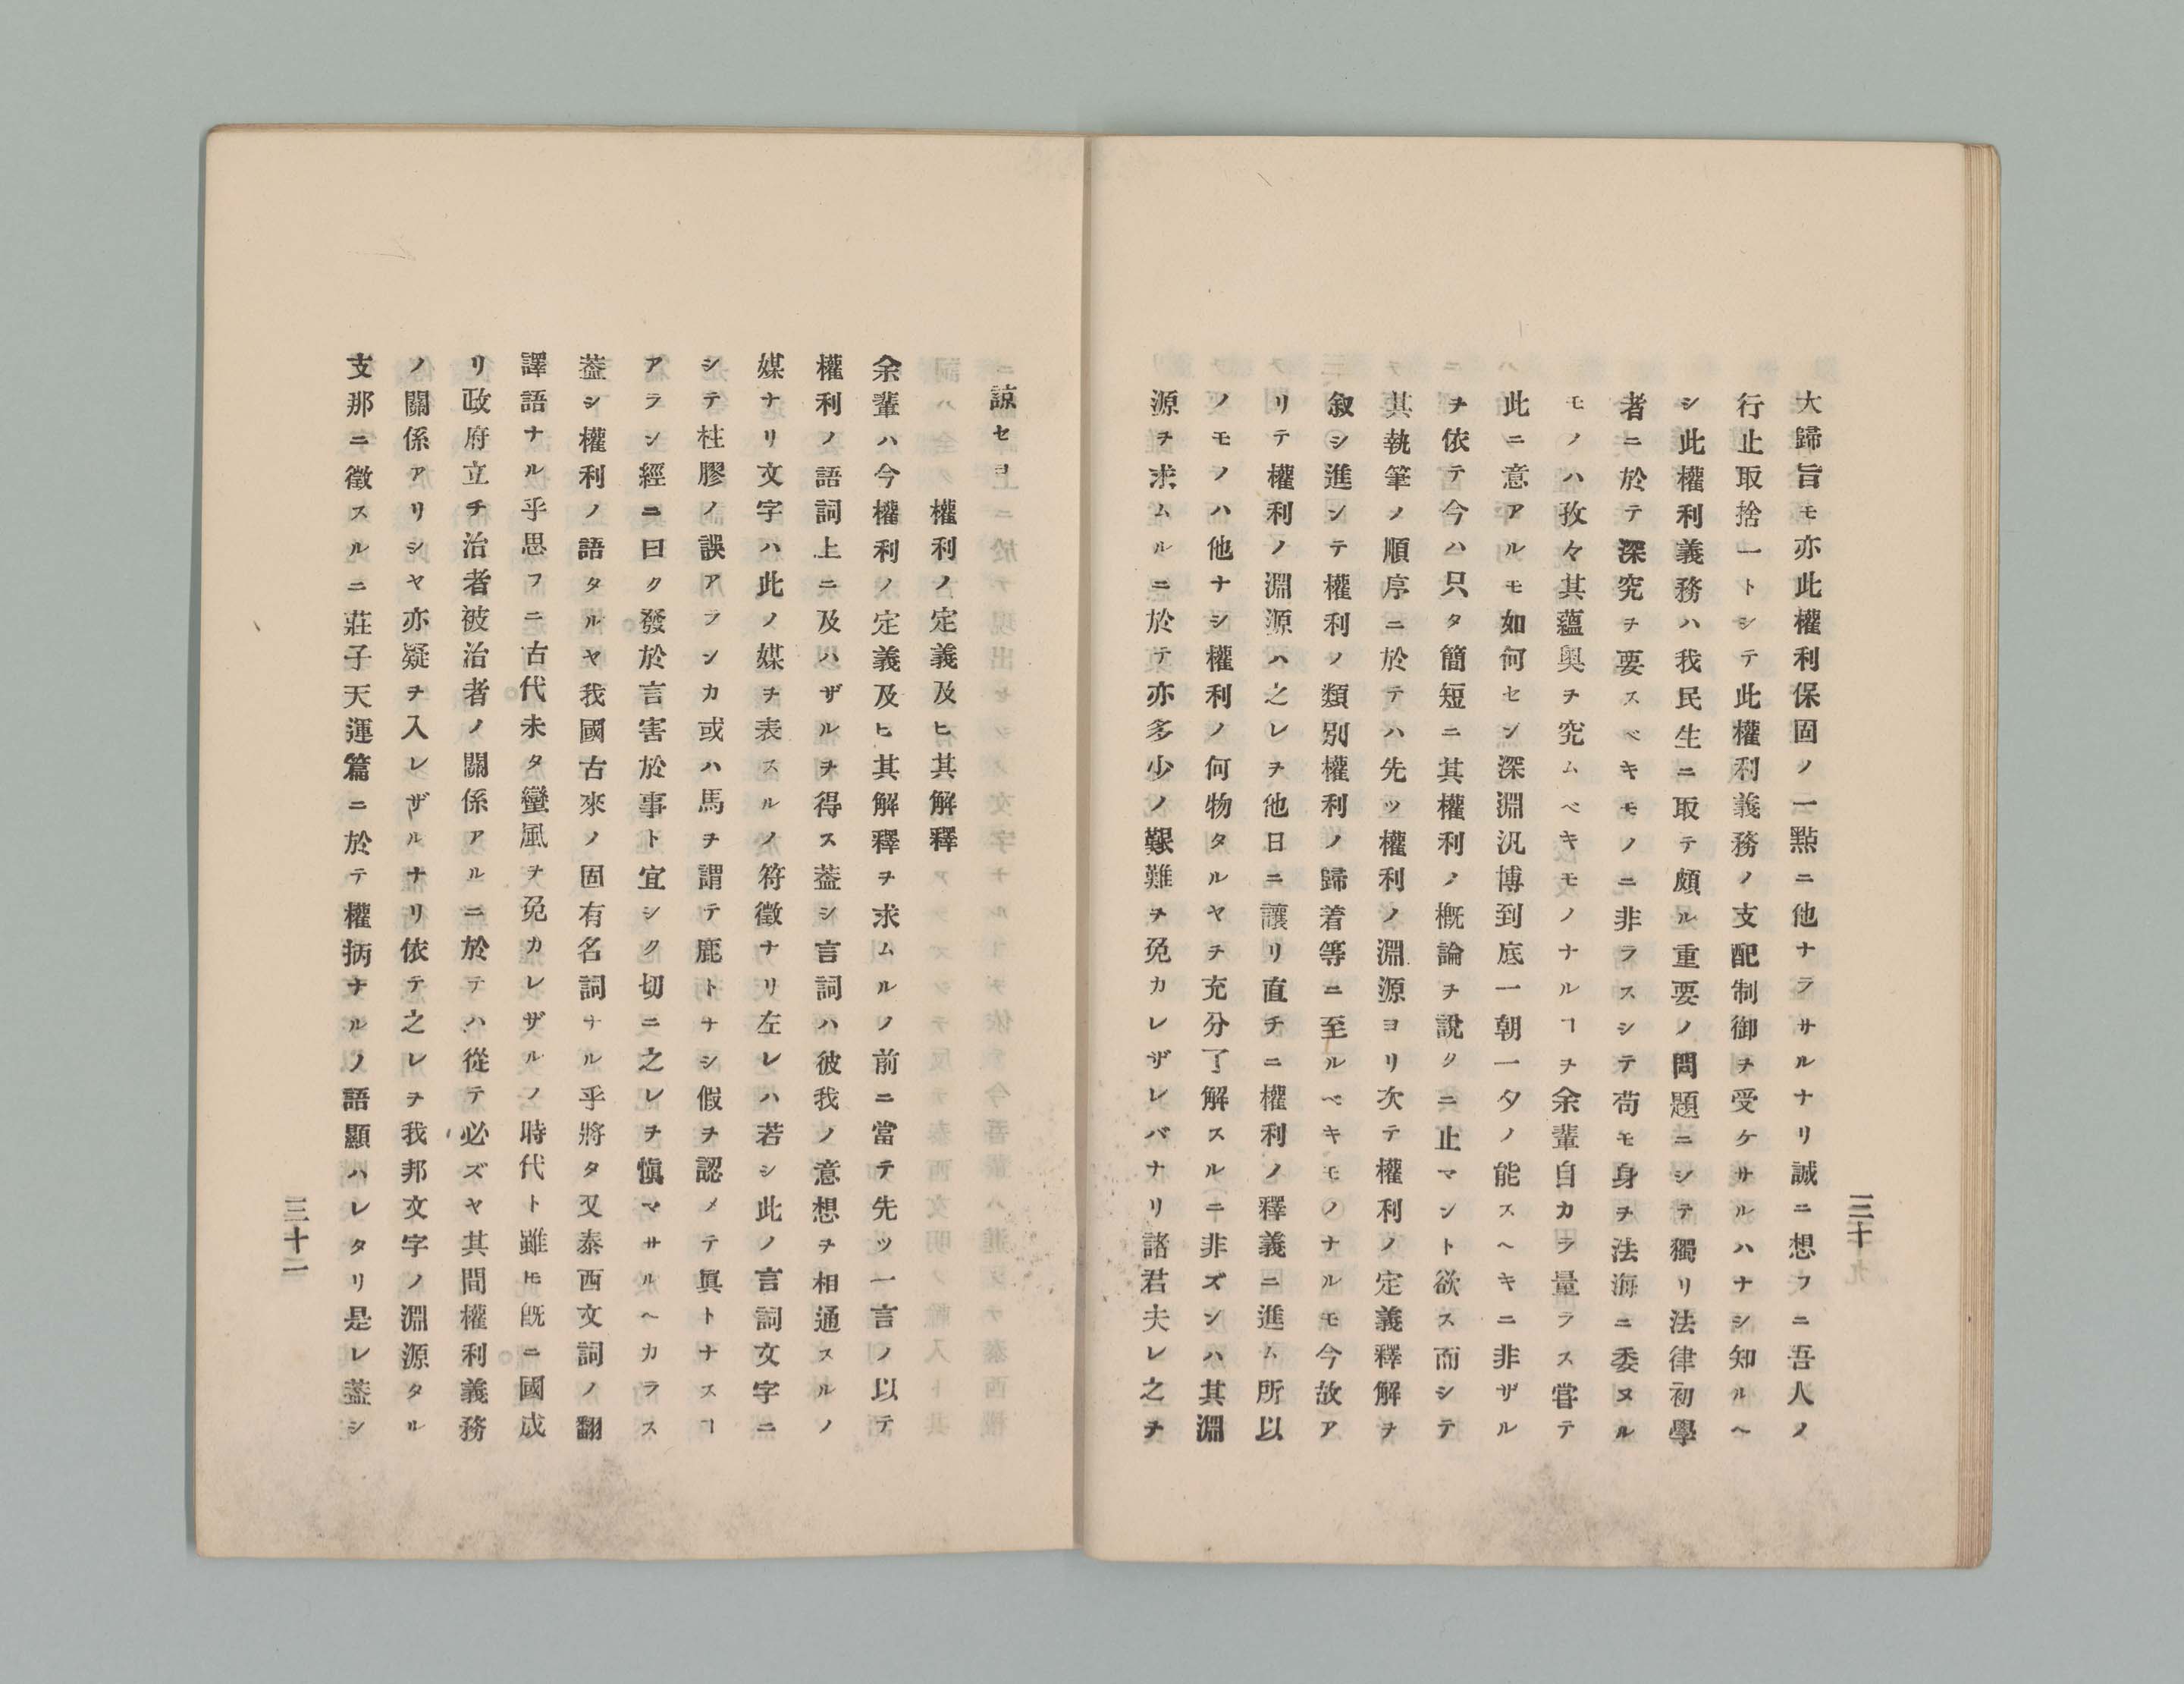 三十
大歸旨モ亦此權利保固ノ一點ニ他ナラサルナリ誠ニ想フニ吾人ノ
行止取捨一トシテ此權利義務ノ支配制御ヲ受ケサルハナシ知ルヘ
シ此權利義務ハ我民生ニ取テ頗ル重要ノ問題ニシテ獨リ法律初學
者ニ於テ深究ヲ要スベキモノニ非ラスシテ苟モ身ヲ法海ニ委ヌル
モノハ孜々其蘊奥ヲ究ムベキモノナルヿヲ余輩自カラ量ラス甞テ
此ニ意アルモ如何セン深淵汎博到底一朝一夕ノ能スヘキニ非ザル
ヲ依テ今ハ只タ簡短ニ其權利ノ概論ヲ說クニ止マント欲ス而シテ
其執筆ノ順序ニ於テハ先ツ權利ノ淵源ヨリ次テ權利ノ定義釋解ヲ
叙シ進ンテ權利ノ類別權利ノ歸着等ニ至ルベキモノナルモ今故ア
リテ權利ノ淵源ハ之レヲ他日ニ讓リ直チニ權利ノ釋義ニ進ム所以
ノモノハ他ナシ權利ノ何物タルヤヲ充分了解スルニ非ズンハ其淵
源ヲ求ムルニ於テ亦多少ノ艱難ヲ免カレザレバナリ諸君夫レ之ヲ
諒セヨ
權利ノ定義及ヒ其解釋
余輩ハ今權利ノ定義及ヒ其解釋ヲ求ムルノ前ニ當テ先ツ一言ノ以テ
權利ノ語詞上ニ及ハザルヲ得ス葢シ言詞ハ彼我ノ意想ヲ相通スルノ
媒ナリ文字ハ此ノ媒ヲ表スルノ符徵ナリ左レハ若シ此ノ言詞文字ニ
シテ柱膠ノ誤アランカ或ハ馬ヲ謂テ鹿トナシ假ヲ認メテ眞トナスヿ
アラン經ニ曰ク發於言害於事ト宜シク切ニ之レヲ愼マサルヘカラス
葢シ權利ノ語タルヤ我國古來ノ固有名詞ナル乎將タ又泰西文詞ノ翻
譯語ナル乎思フニ古代未タ蠻風ヲ免カレザルノ時代ト雖𪜈既ニ國成
リ政府立チ治者被治者ノ關係アルニ於テハ從テ必ズヤ其間權利義務
ノ關係アリシヤ亦疑ヲ入レザルナリ依テ之レヲ我邦文字ノ淵源タル
支那ニ徵スルニ莊子天運篇ニ於テ權柄ナルノ語顯ハレタリ是レ葢シ
三十一